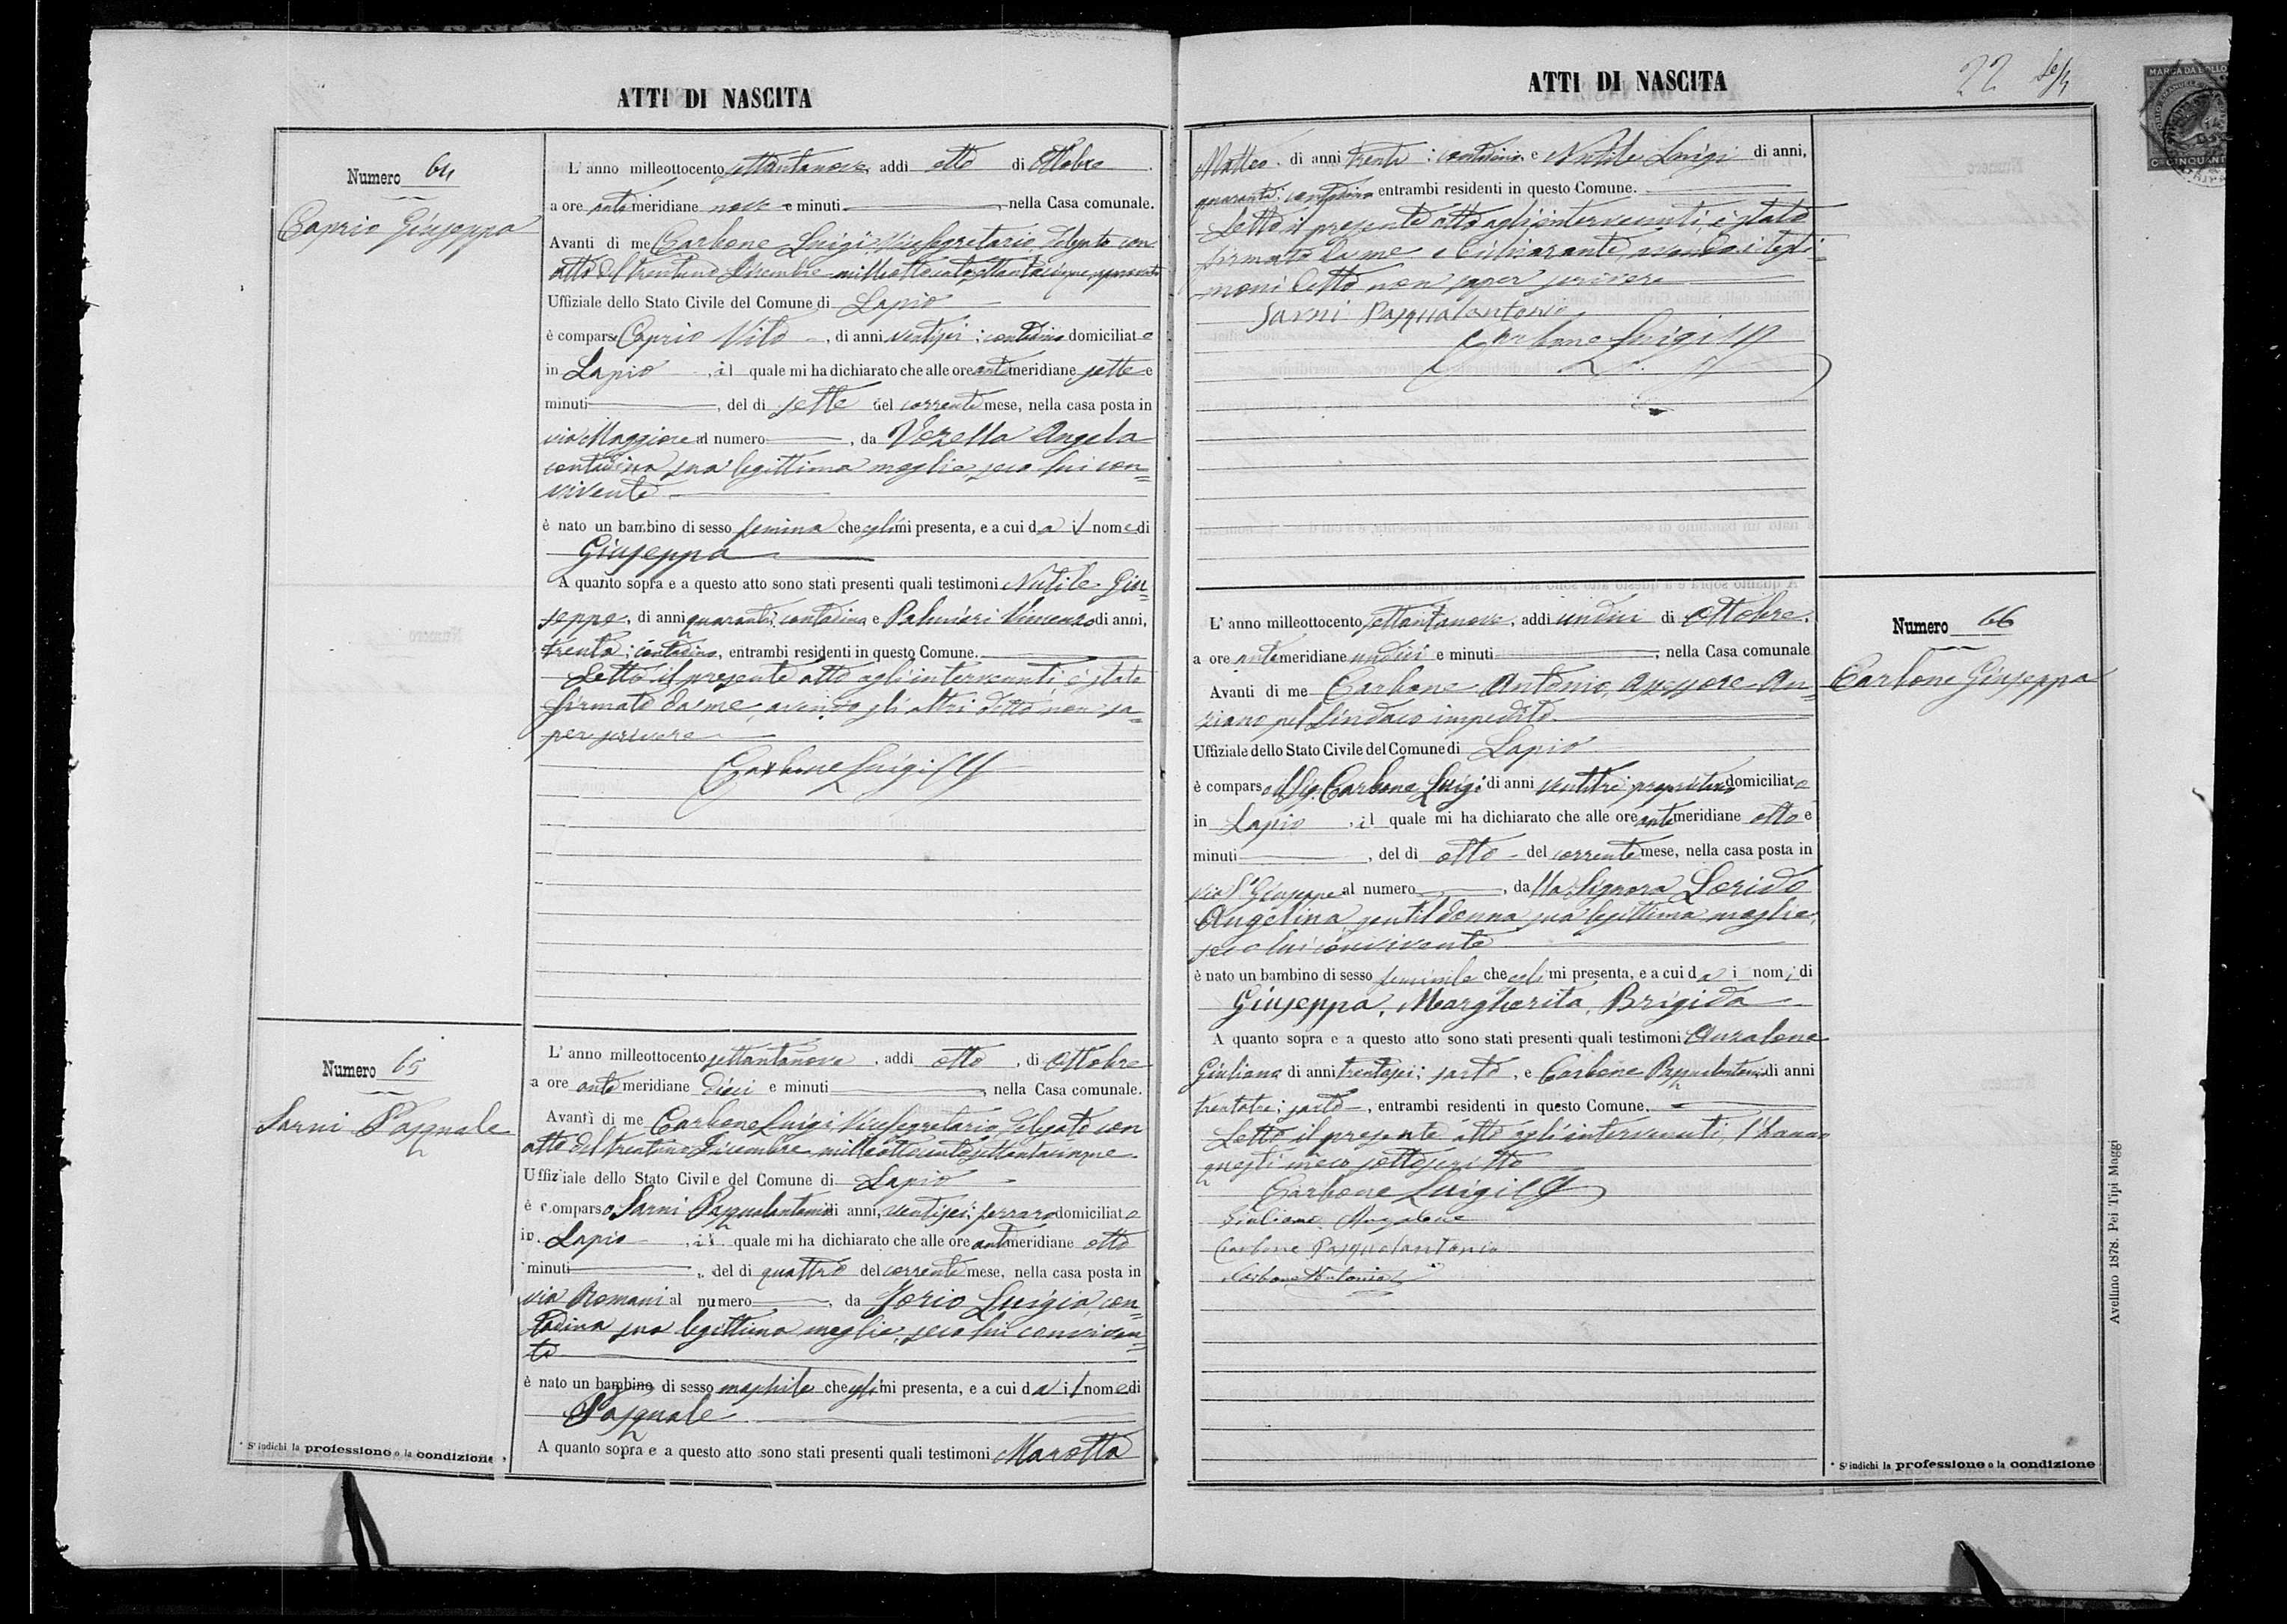 ATTI DI NASCITA
Numero 64
Caprio Giuseppa
L' anno milleottocento settantanove, addi otto di Ottobre
a ore antimeridiane nove e minuti , nella Casa comunale.
Avanti di me Carbone Luigi, Vicesegretario, delegato con
atto del trentuno Dicembre milleottocentosettantacinque, approvato
Uffiziale dello Stato Civile del Comune di Lapio
è comparso Caprio Vito, di anni ventisei; contadino domiciliato
in Lapio, il quale mi ha dichiarato che alle ore antimeridiane sette e
minuti , del di sette del corrente mese, nella casa posta in
via Maggiore al numero , da Verella Angela
contadina sua legittima moglie, seco lui con=
vivente
è nato un bambino di sesso femina che egli mi presenta, e a cui da il nome di
Giuseppa
A quanto sopra e a questo atto sono stati presenti quali testimoni Nutile Giu=
seppe, di anni quaranta, contadino e Palmieri Vincenzo di anni,
trenta; contadino, entrambi residenti in questo Comune.
Letto il presente atto agli intervenuti, è stato
firmato da me, avendo gli altri detto non sa=
per scrivere
Carbone Luigi
Numero 65
Sarni Pasquale
L' anno milleottocento settantanove, addi otto, di Ottobre
a ore antimeridiane dieci e minuti , nella Casa comunale.
Avanti di me Carbone Luigi, Vicesegretario, delegato con
atto del trentuno Dicembre milleottocentosettantacinque
Uffiziale dello Stato Civile del Comune di Lapio
è comparso Sarni Pasqualantonio di anni, ventisei; ferraro domiciliato
in Lapio, il quale mi ha dichiarato che alle ore antimeridiane otto
minuti , del di quattro del corrente mese, nella casa posta in
via Romani al numero , da Jorio Luigia, con=
tadina sua legittima moglie, seco lui conviven=
te
è nato un bambino di sesso maschile che egli mi presenta, e a cui da il nome di
Pasquale
A quanto sopra e a questo atto sono stati presenti quali testimoni Marotta
* S'indichi la professione o la condizione
ATTI DI NASCITA
22
MARCA DA BOLLO
Matteo, di anni trenta; contadino e Nutile Luigi di anni,
quaranta; contadino entrambi residenti in questo Comune.
Letto il presente atto agli intervenuti, è stato
firmato da me e dichiarante, avendo i testi=
moni detto non saper scrivere
Sarni Pasqualantonio
Carbone Luigi
Numero 66
Carbone Giuseppa
L' anno milleottocento settantanove, addi undici di Ottobre.
a ore antimeridiane undici e minuti , nella Casa comunale
Avanti di me Carbone Antonio, Assessore An=
ziano pel Sindaco impedito.
Uffiziale dello Stato Civile del Comune di Lapio
è comparso il Sig. Carbone Luigi di anni ventitre; proprietario domiciliato
in Lapio, il quale mi ha dichiarato che alle ore antimeridiane otto e
minuti , del di otto del corrente mese, nella casa posta in
via S. Giuseppe al numero , dalla Signora Lorido
Angelina, gentildonna, sua legittima moglie,
seco lui convivente
è nato un bambino di sesso feminile che egli mi presenta, e a cui da i nomi di
Giuseppa, Margherita, Brigida
A quanto sopra e a questo atto sono stati presenti quali testimoni Anzalone
Giuliano di anni trentasei; sarto, e Carbone Pasqualantonio di anni
trentatre; sarto, entrambi residenti in questo Comune.
Letto il presente atto agli intervenuti, l'hanno
questi meco sottoscritto
Carbone Luigi
Giuliano Anzalone
Carbone Pasqualantonio
Carbone Antonio
* S'indichi la professione o la condizione
Avellino 1878. Pei Tipi Maggi